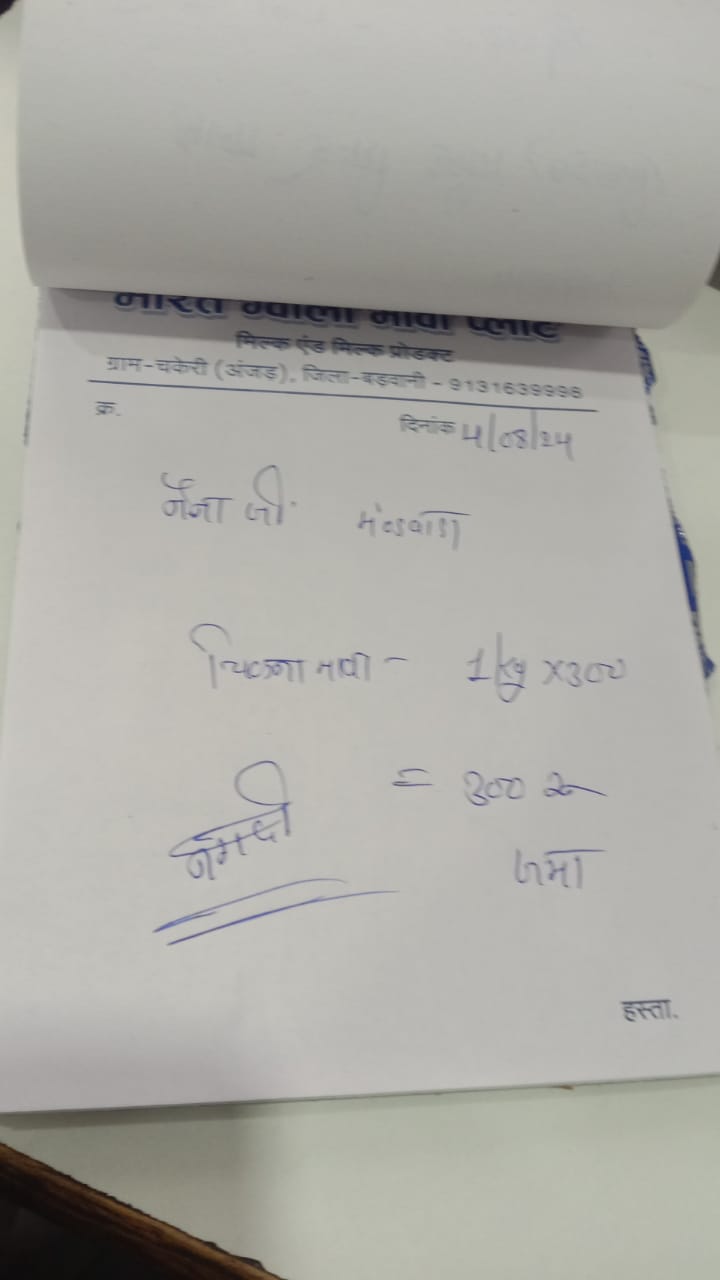 भारत ग्वाला मावा प्लांट
मिल्क एंड मिल्क प्रोडक्ट
ग्राम-चकेरी (अंजड़), जिला-बड़वानी - 9131639996
क्र.
दिनांक 4/08/24
नैना जी मंडवाडा
चिकना मावा - 1 kg x 300
= 300 रु
नगदी
जमा
हस्ता.